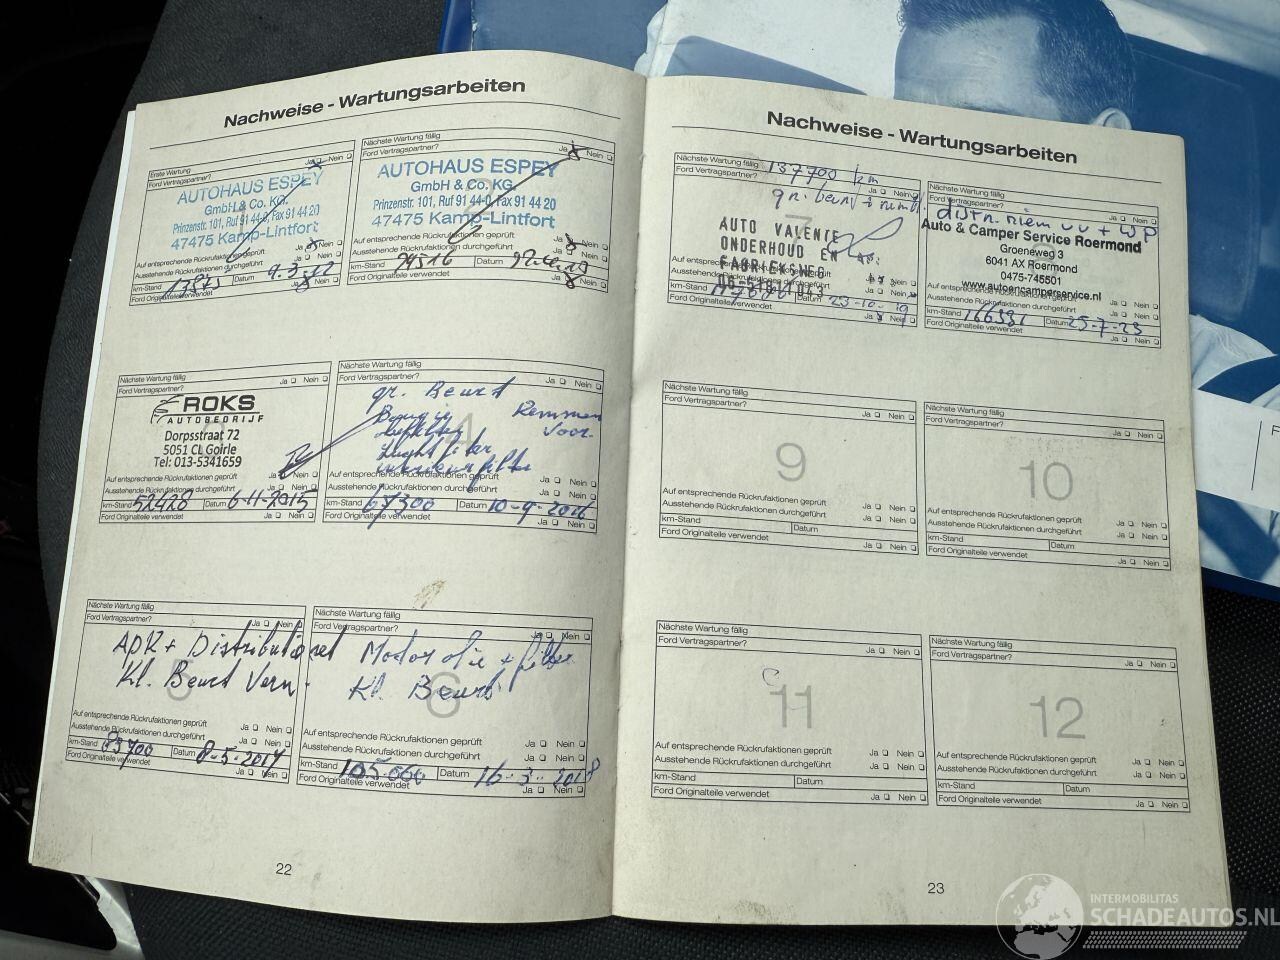 Nachweise - Wartungsarbeiten
Erste Wartung
Ja Nein
Ford Vertragspartner?
AUTOHAUS ESPEY
GmbH & Co. KG.
Prinzenstr. 101, Ruf 91 44-0, Fax 91 44 20
47475 Kamp-Lintfort
Auf entsprechende Rückrufaktionen geprüft
Ja Nein
Ausstehende Rückrufaktionen durchgeführt
Ja Nein
km-Stand 13875 Datum 9.3.12
Ford Originalteile verwendet
Ja Nein
Nächste Wartung fällig
Ford Vertragspartner?
Ja Nein
AUTOHAUS ESPEY
GmbH & Co. KG.
Prinzenstr. 101, Ruf 91 44-0, Fax 91 44 20
47475 Kamp-Lintfort
Auf entsprechende Rückrufaktionen geprüft
Ja Nein
Ausstehende Rückrufaktionen durchgeführt
Ja Nein
km-Stand Datum
Ford Originalteile verwendet
Ja Nein
Nächste Wartung fällig
Ford Vertragspartner?
Ja Nein
ROKS
AUTOBEDRIJF
Dorpsstraat 72
5051 CL Goirle
Tel: 013-5341659
Ja Nein
Ausstehende Rückrufaktionen durchgeführt
Ja Nein
km-Stand 52428 Datum 6-11-2015
Ford Originalteile verwendet
Ja Nein
Nächste Wartung fällig
Ford Vertragspartner?
Ja Nein
4
gr. Beurt
Bougie Remmen
Luchtfilter voor.
interieurfilter
Auf entsprechende Rückrufaktionen geprüft
Ja Nein
Ausstehende Rückrufaktionen durchgeführt
Ja Nein
km-Stand 67300 Datum 10-9-2016
Ford Originalteile verwendet
Ja Nein
Nächste Wartung fällig
Ford Vertragspartner?
Ja Nein
5
APK + Distributieriet
Kl. Beurt Vern.
Auf entsprechende Rückrufaktionen geprüft
Ja Nein
Ausstehende Rückrufaktionen durchgeführt
Ja Nein
km-Stand 83700 Datum 8-5-2017
Ford Originalteile verwendet
Ja Nein
Nächste Wartung fällig
Ford Vertragspartner?
Ja Nein
6
Motor olie + filter
Kl. Beurt
Auf entsprechende Rückrufaktionen geprüft
Ja Nein
Ausstehende Rückrufaktionen durchgeführt
Ja Nein
km-Stand 105000 Datum 16-3-2018
Ford Originalteile verwendet
Ja Nein
22
Nachweise - Wartungsarbeiten
Nächste Wartung fällig 137700 km
Ford Vertragspartner?
Ja Nein
7
gr. beurt +
AUTO VALENTE
ONDERHOUD EN
FABRIEKSWEG
Ja Nein
Ausstehende Rückrufaktionen durchgeführt
Ja Nein
km-Stand Datum 23-10-19
Ford Originalteile verwendet
Ja Nein
Nächste Wartung fällig
Ford Vertragspartner?
Ja Nein
distr. riem vv + WP
Auto & Camper Service Roermond
Groeneweg 3
6041 AX Roermond
0475-745501
www.autoencamperservice.nl
Ja Nein
Ausstehende Rückrufaktionen durchgeführt
Ja Nein
km-Stand 166381 Datum 25-7-23
Ford Originalteile verwendet
Ja Nein
Nächste Wartung fällig
Ford Vertragspartner?
Ja Nein
9
Auf entsprechende Rückrufaktionen geprüft
Ja Nein
Ausstehende Rückrufaktionen durchgeführt
Ja Nein
km-Stand Datum
Ford Originalteile verwendet
Ja Nein
Nächste Wartung fällig
Ford Vertragspartner?
Ja Nein
10
Auf entsprechende Rückrufaktionen geprüft
Ja Nein
Ausstehende Rückrufaktionen durchgeführt
Ja Nein
km-Stand Datum
Ford Originalteile verwendet
Ja Nein
Nächste Wartung fällig
Ford Vertragspartner?
Ja Nein
11
Auf entsprechende Rückrufaktionen geprüft
Ja Nein
Ausstehende Rückrufaktionen durchgeführt
Ja Nein
km-Stand Datum
Ford Originalteile verwendet
Ja Nein
Nächste Wartung fällig
Ford Vertragspartner?
Ja Nein
12
Auf entsprechende Rückrufaktionen geprüft
Ja Nein
Ausstehende Rückrufaktionen durchgeführt
Ja Nein
km-Stand Datum
Ford Originalteile verwendet
Ja Nein
23
F
INTERMOBILITAS
SCHADEAUTOS.NL